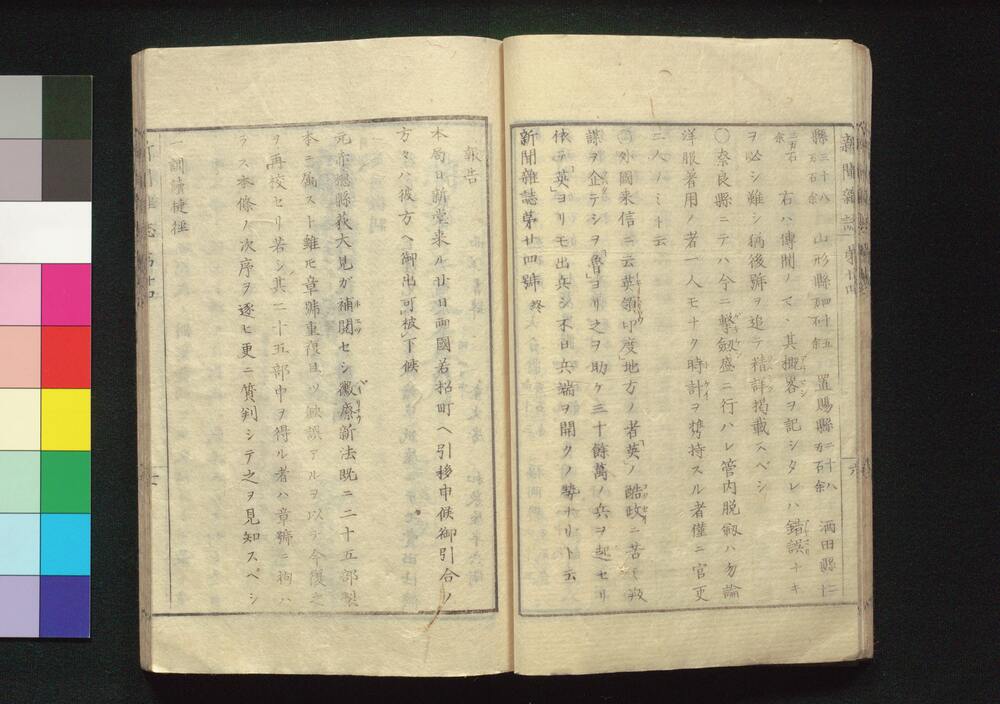 新聞雜誌 第廿四
縣三十八万石余 山形縣四十五万石余 置賜縣二十八万石余 酒田縣二十
二万石余 右ハ傳聞ノマヽ其概畧ヲ記シタレハ錯誤ナキ
ヲ必シ難シ猶後號ヲ追テ精詳掲載スベシ
〇奈良縣ニテハ今ニ撃劔盛ニ行ハレ管内脱劔ハ勿論
洋服著用ノ者一人モナク時計ヲ携持スル者僅ニ官吏
二人ノミト云
〇外國来信ニ云英領印度地方ノ者英ノ酷政ニ苦ミ叛
謀ヲ企テシヲ魯ヨリ之ヲ助ケ三十餘萬ノ兵ヲ起セリ
依テ英ヨリモ出兵シ不日兵端ヲ開クノ勢ナリト云
新聞雜誌第廿四號終
報告
本局日新堂来ル廿日両國若松町ヘ引移申候御引合ノ
方々ハ彼方ヘ御出可被下候
元赤穗縣荻大見ガ補閲セシ黴療新法既ニ二十五部製
本ニ属スト雖モ章號重複且ツ缺誤アルヲ以テ今復之
ヲ再校セリ若シ其二十五部中ヲ得ル者ハ章號ニ拘ハ
ラス本條ノ次序ヲ逐ヒ更ニ質判シテ之ヲ見知スベシ
一訓蒙捷徑